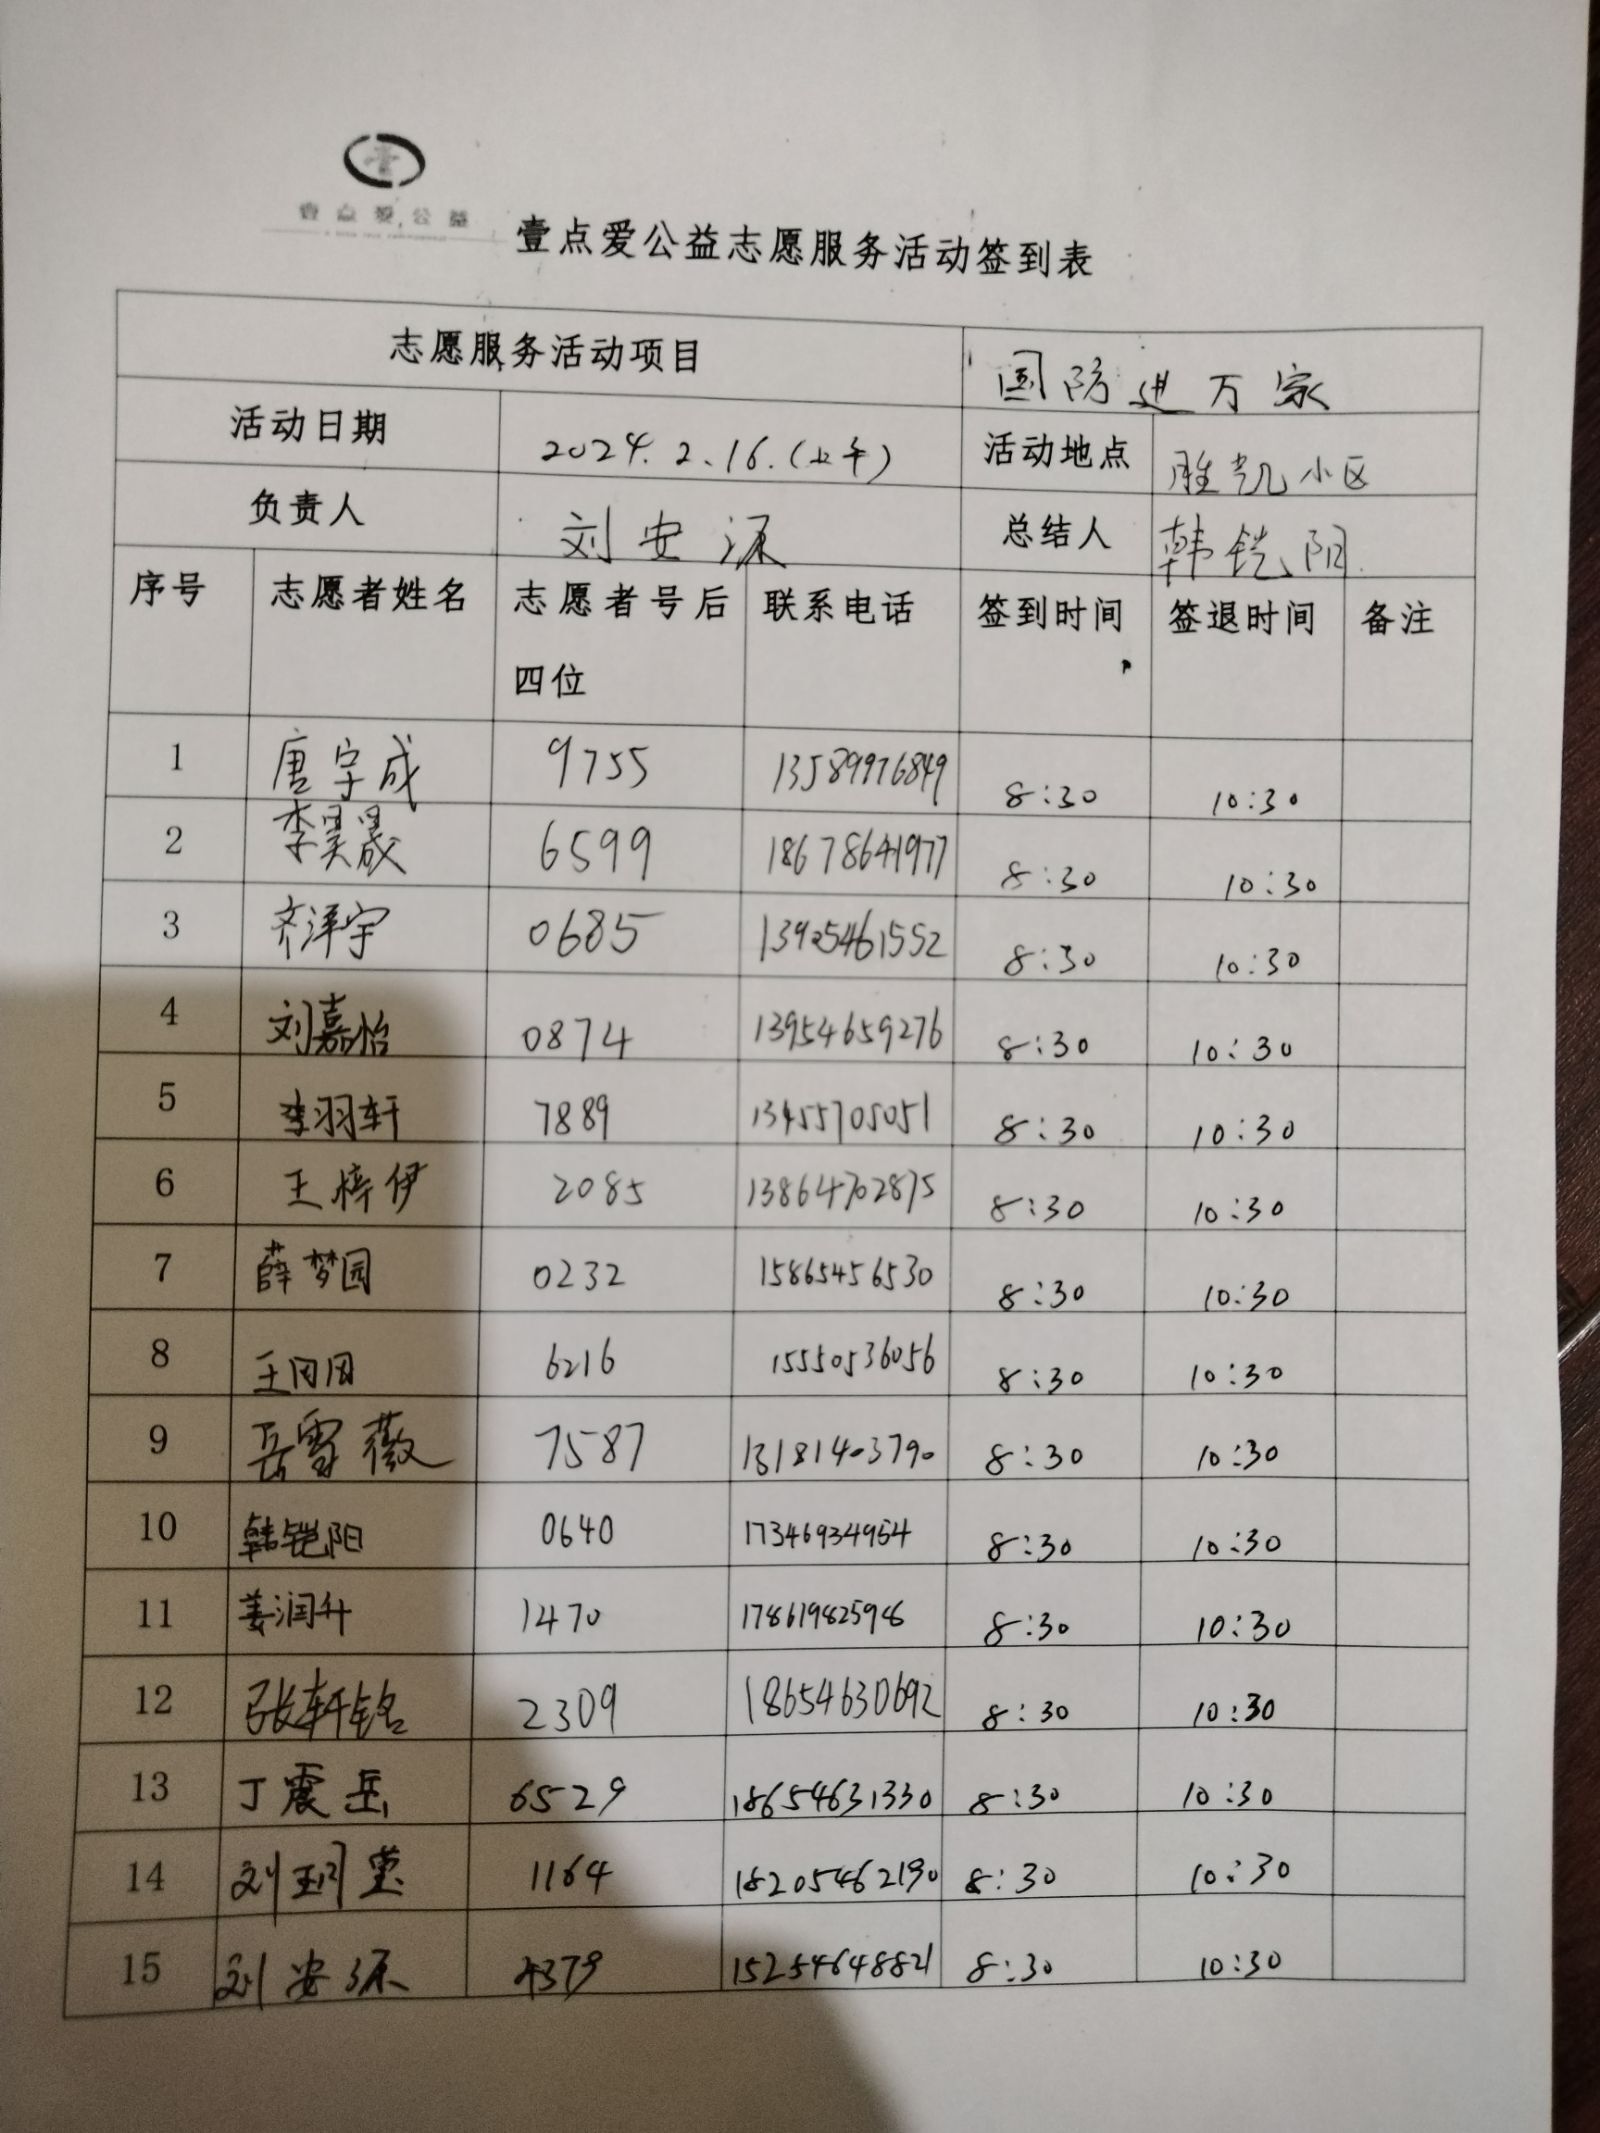 壹点爱公益
壹点爱公益志愿服务活动签到表
志愿服务活动项目 国防进万家
活动日期 2024.2.16.(上午) 活动地点 胜凯小区
负责人 刘安源 总结人 韩铠阳
序号 志愿者姓名 志愿者号后 联系电话 签到时间 签退时间 备注
四位
1 唐宇成 9755 13589976849 8:30 10:30
2 李昊晟 6599 18678641977 8:30 10:30
3 齐泽宇 0685 13925461552 8:30 10:30
4 刘嘉怡 0874 13954659276 8:30 10:30
5 李羽轩 7889 13455705051 8:30 10:30
6 王梓伊 2085 13864702875 8:30 10:30
7 薛梦园 0232 15865456530 8:30 10:30
8 王冈冈 6216 15550536056 8:30 10:30
9 岳雪薇 7587 13181403790 8:30 10:30
10 韩铠阳 0640 17346934954 8:30 10:30
11 姜润升 1470 17861982598 8:30 10:30
12 张轩铭 2309 18654630692 8:30 10:30
13 丁震岳 6529 18654631330 8:30 10:30
14 刘玥莹 1164 18205462190 8:30 10:30
15 刘安源 4379 15254648821 8:30 10:30